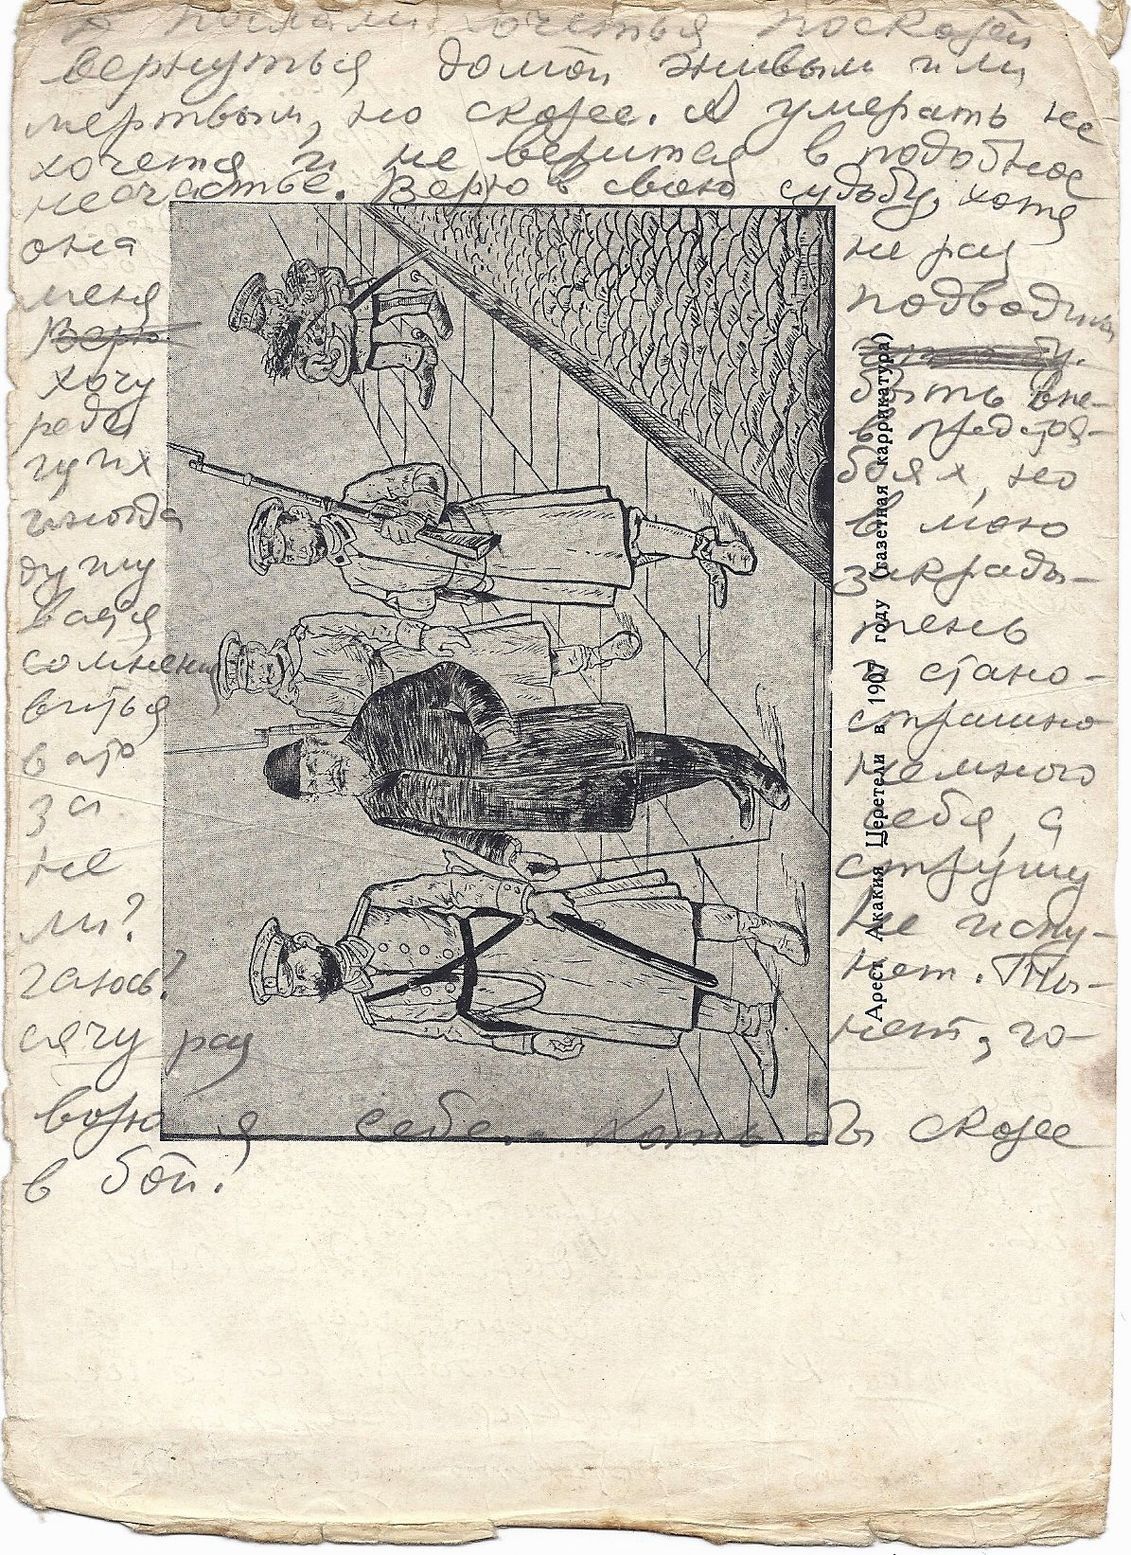 хочеться поскорей
вернуться домой живым или
мертвым, но скорее. А умерать не
хочется и не верится в подобное
несчастье. Верю в свою судьбу, хотя
она не раз
меня подводила
Верю
хочу быть впе-
реди в предстоя-
щих боях, но
иногда в мою
душу закрады-
вается тень
сомнения и стано-
виться страшно
немного
за себя, а
не струшу
ли? Не испу-
гаюсь? Нет. Ты-
сячу раз нет, го-
ворю я себе. Хоть бы скорее
в бой!
Арест Акакия Церетели в 1907 году (газетная каррикатура)